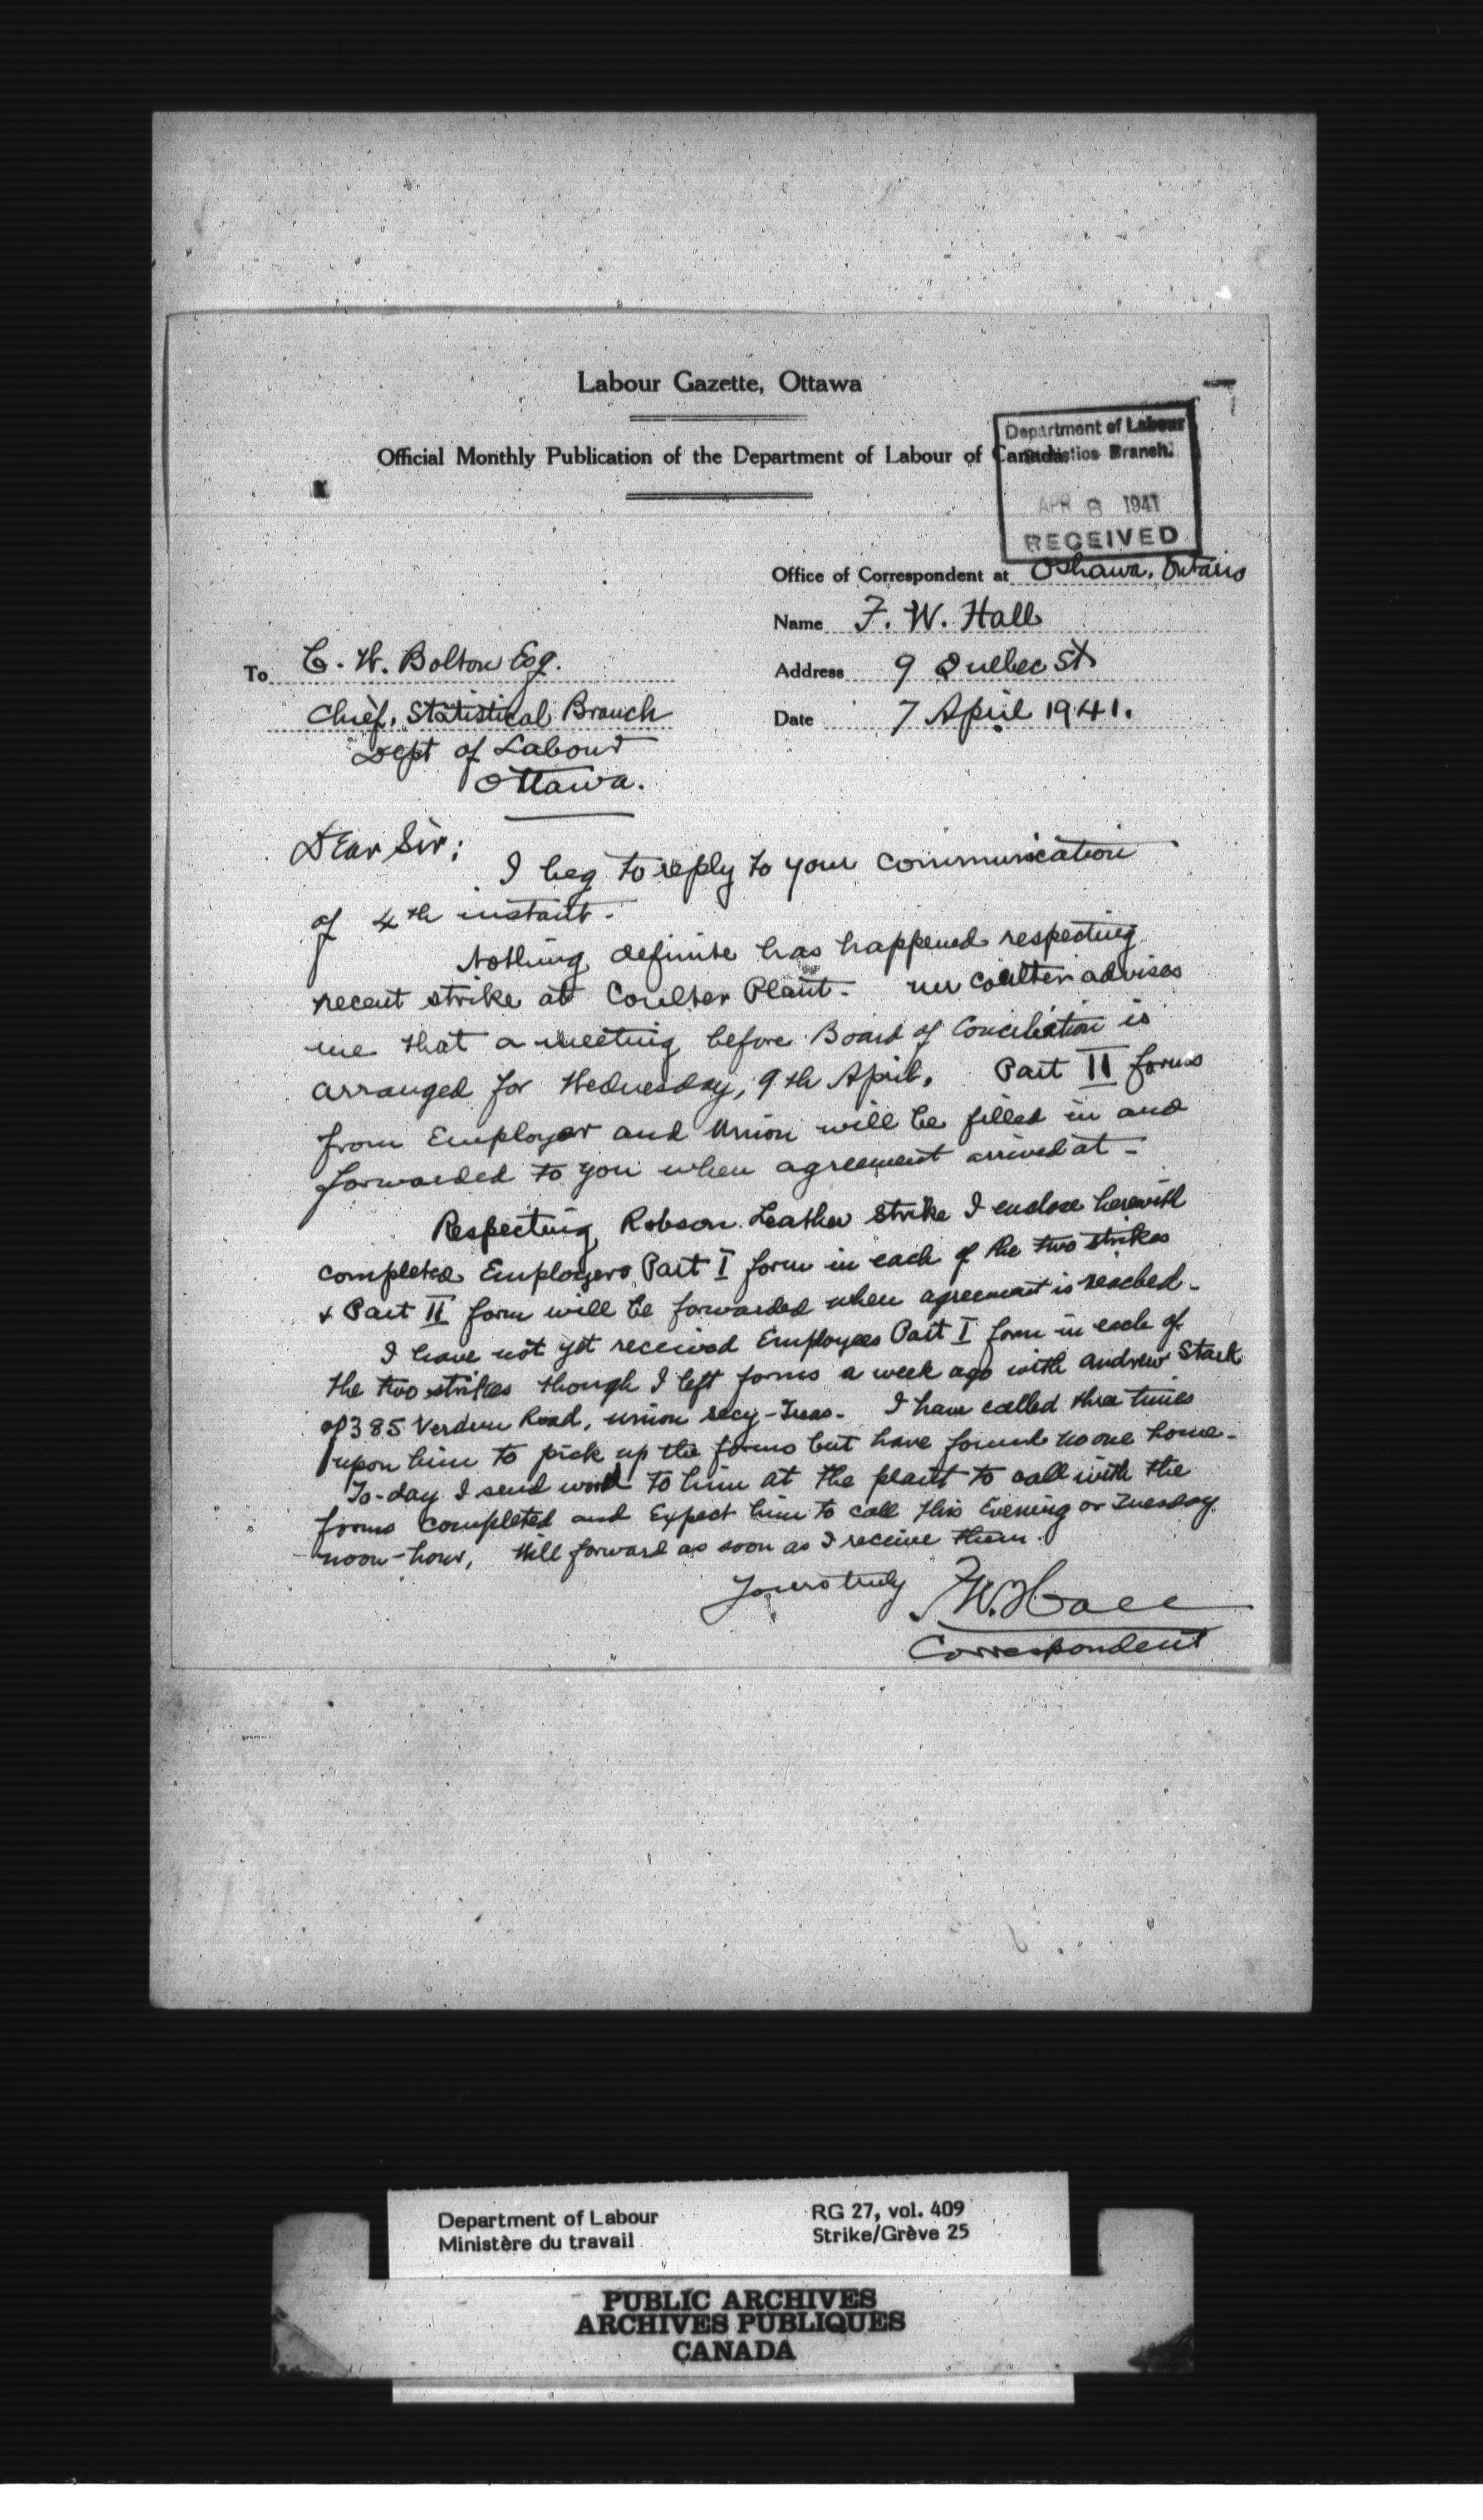 Labour Gazette, Ottawa
Official Monthly Publication of the Department of Labour of Canada.
Department of Labour
Statistics Branch.
APR 8 1941
RECEIVED
Office of Correspondent at Oshawa, Ontario
Name F. W. Hall
Address 9 Quebec St
Date 7 April 1941.
To C. W. Bolton Esq.
Chief, Statistical Branch
Dept of Labour
Ottawa.
Dear Sir;
I beg to reply to your communication
of 4th instant.
Nothing definite has happened respecting
recent strike at Coulter Plant. Mr Coulter advises
me that a meeting before Board of Conciliation is
arranged for Wednesday, 9th April. Part II forms
from Employer and Union will be filled in and
forwarded to you when agreement arrived at -
Respecting Robson Leather Strike I enclose herewith
completed Employers Part I form in each of the two strikes
& Part II form will be forwarded when agreement is reached -
I have not yet received Employees Part I form in each of
the two strikes though I left forms a week ago with Andrew Stark
of 385 Verdun Road, Union Secy-Treas. I have called three times
upon him to pick up the forms but have found no one home -
To-day I send word to him at the plant to call with the
forms completed and Expect him to call this Evening or Tuesday
noon-hour, Will forward as soon as I receive them.
Yours truly F.W. Hall
Correspondent
Department of Labour
Ministère du travail
RG 27, vol. 409
Strike/Grève 25
PUBLIC ARCHIVES
ARCHIVES PUBLIQUES
CANADA